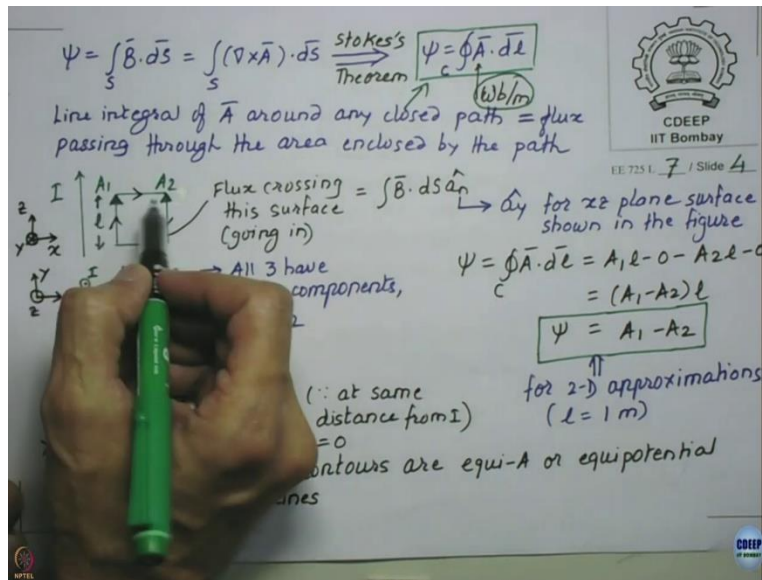 Ψ = ∫_S B̄·ds̄ = ∫_S (∇×Ā)·ds̄ ⟹ Stokes's Theorem Ψ = ∮_C Ā·dl̄
Wb/m
Line integral of Ā around any closed path = flux
passing through the area enclosed by the path
CDEEP
IIT Bombay
EE 725 L 7 / Slide 4
I
A1 A2
l
z
y x
Flux crossing = ∫B̄·ds âₙ
this surface
(going in)
→ ây for xz plane surface
shown in the figure
y I
z
→ All 3 have
components,
Ψ = ∮_C Ā·dl̄ = A1l - 0 - A2l - 0
= (A1-A2)l
Ψ = A1-A2
for 2-D approximations
(l = 1 m)
(∵ at same
distance from I)
=0
ontours are equi-A or equipotential
ines
NPTEL
CDEEP
IIT BOMBAY